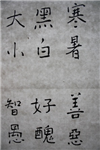 寒暑
黑白
大小
善惡
好醜
智愚